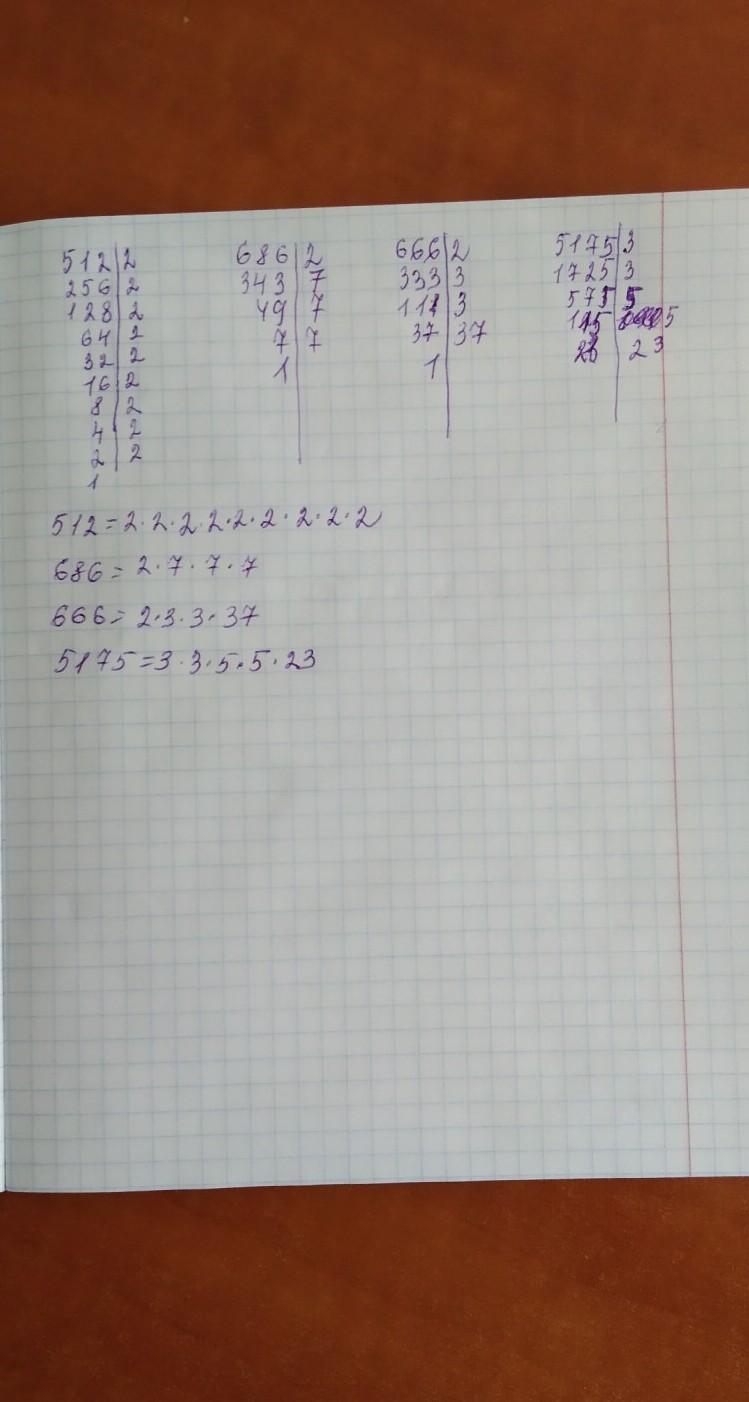 512|2
256|2
128|2
64|2
32|2
16|2
8|2
4|2
2|2
1
686|2
343|7
49|7
7|7
1
666|2
333|3
111|3
37|37
1
5175|3
1725|3
575|5
115|5
23|23
512=2·2·2·2·2·2·2·2·2
686=2·7·7·7
666=2·3·3·37
5175=3·3·5·5·23